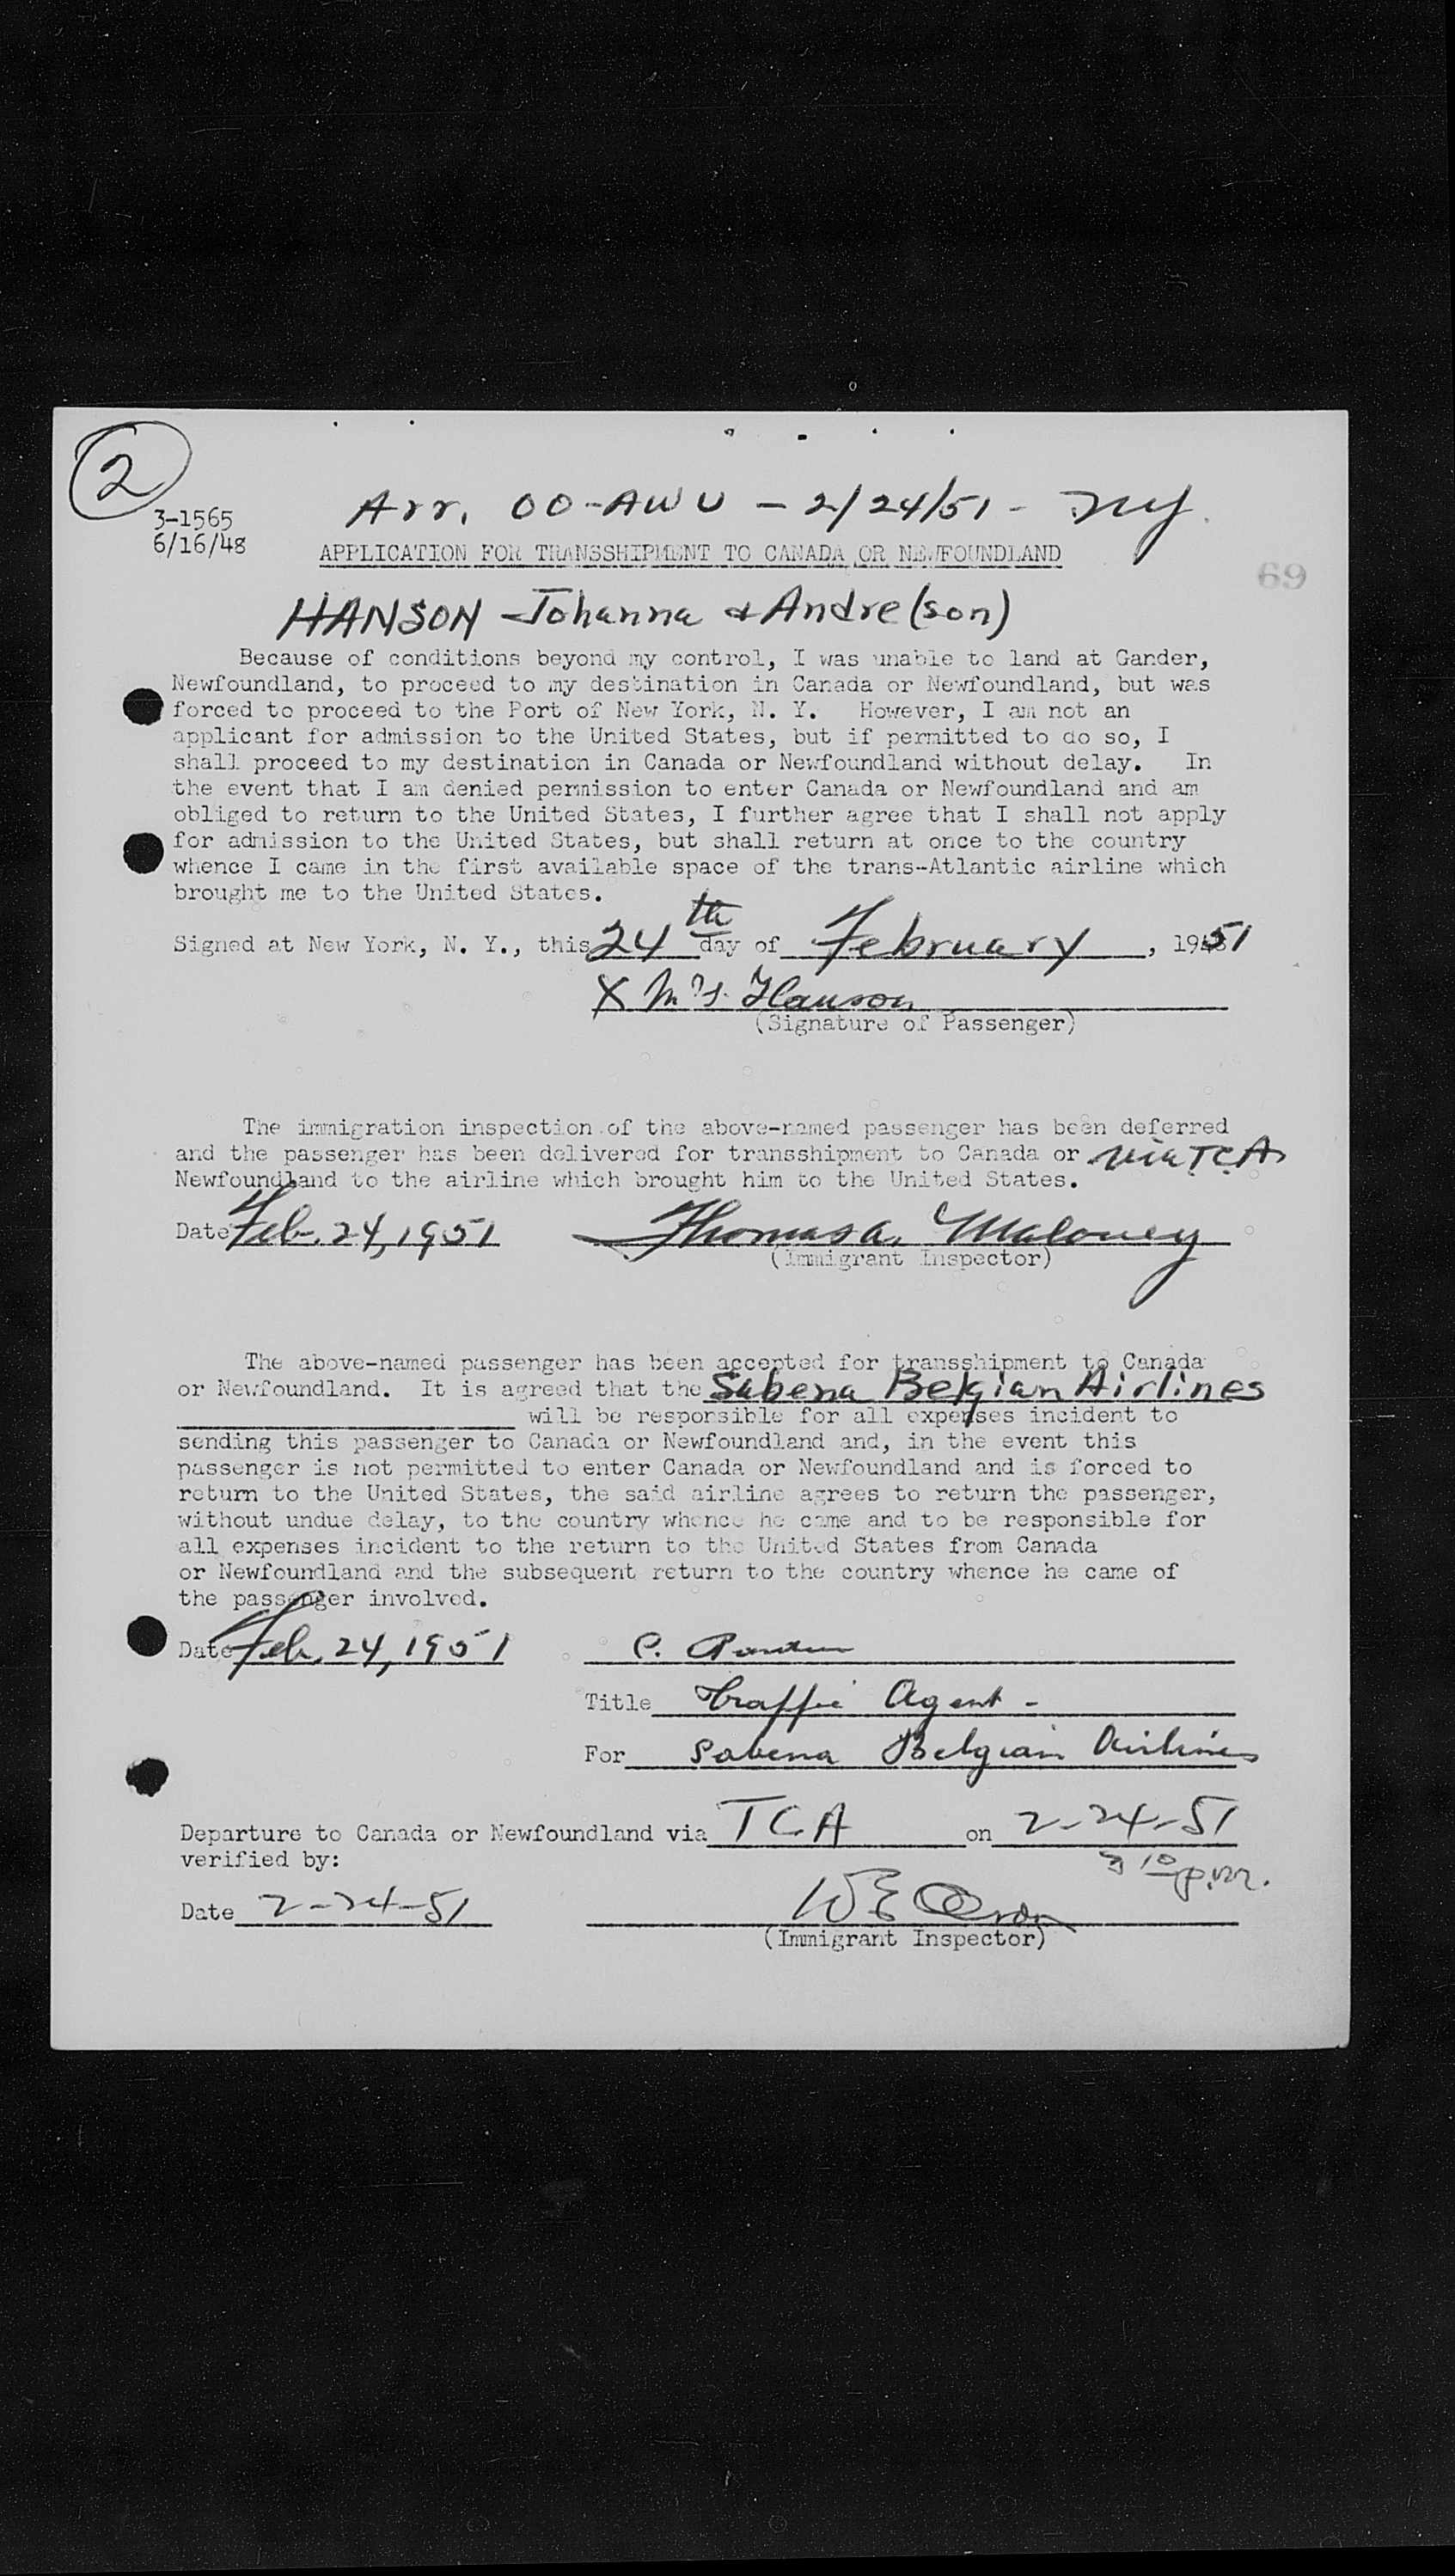 2
3-1565
6/16/48
Arr. OO-AWU - 2/24/51 - NY.
APPLICATION FOR TRANSSHIPMENT TO CANADA OR NEWFOUNDLAND
69
HANSON Johanna & Andre (son)
Because of conditions beyond my control, I was unable to land at Gander,
Newfoundland, to proceed to my destination in Canada or Newfoundland, but was
forced to proceed to the Port of New York, N. Y. However, I am not an
applicant for admission to the United States, but if permitted to do so, I
shall proceed to my destination in Canada or Newfoundland without delay. In
the event that I am denied permission to enter Canada or Newfoundland and am
obliged to return to the United States, I further agree that I shall not apply
for admission to the United States, but shall return at once to the country
whence I came in the first available space of the trans--Atlantic airline which
brought me to the United States.
Signed at New York, N. Y., this 24th day of February, 1951
X Mrs. Hanson
(Signature of Passenger)
The immigration inspection of the above-named passenger has been deferred
and the passenger has been delivered for transshipment to Canada or via TCA
Newfoundland to the airline which brought him to the United States.
Date Feb. 24, 1951 Thomas A. Maloney
(Immigrant Inspector)
The above-named passenger has been accepted for transshipment to Canada
or Newfoundland. It is agreed that the Sabena Belgian Airlines
will be responsible for all expenses incident to
sending this passenger to Canada or Newfoundland and, in the event this
passenger is not permitted to enter Canada or Newfoundland and is forced to
return to the United States, the said airline agrees to return the passenger,
without undue delay, to the country whence he came and to be responsible for
all expenses incident to the return to the United States from Canada
or Newfoundland and the subsequent return to the country whence he came of
the passenger involved.
Date Feb. 24, 1951 C.
Title Traffic Agent -
For Sabena Belgian Airlines
Departure to Canada or Newfoundland via TCA on 2-24-51
verified by: 3 10 p.m.
Date 2-24-51 W E
(Immigrant Inspector)